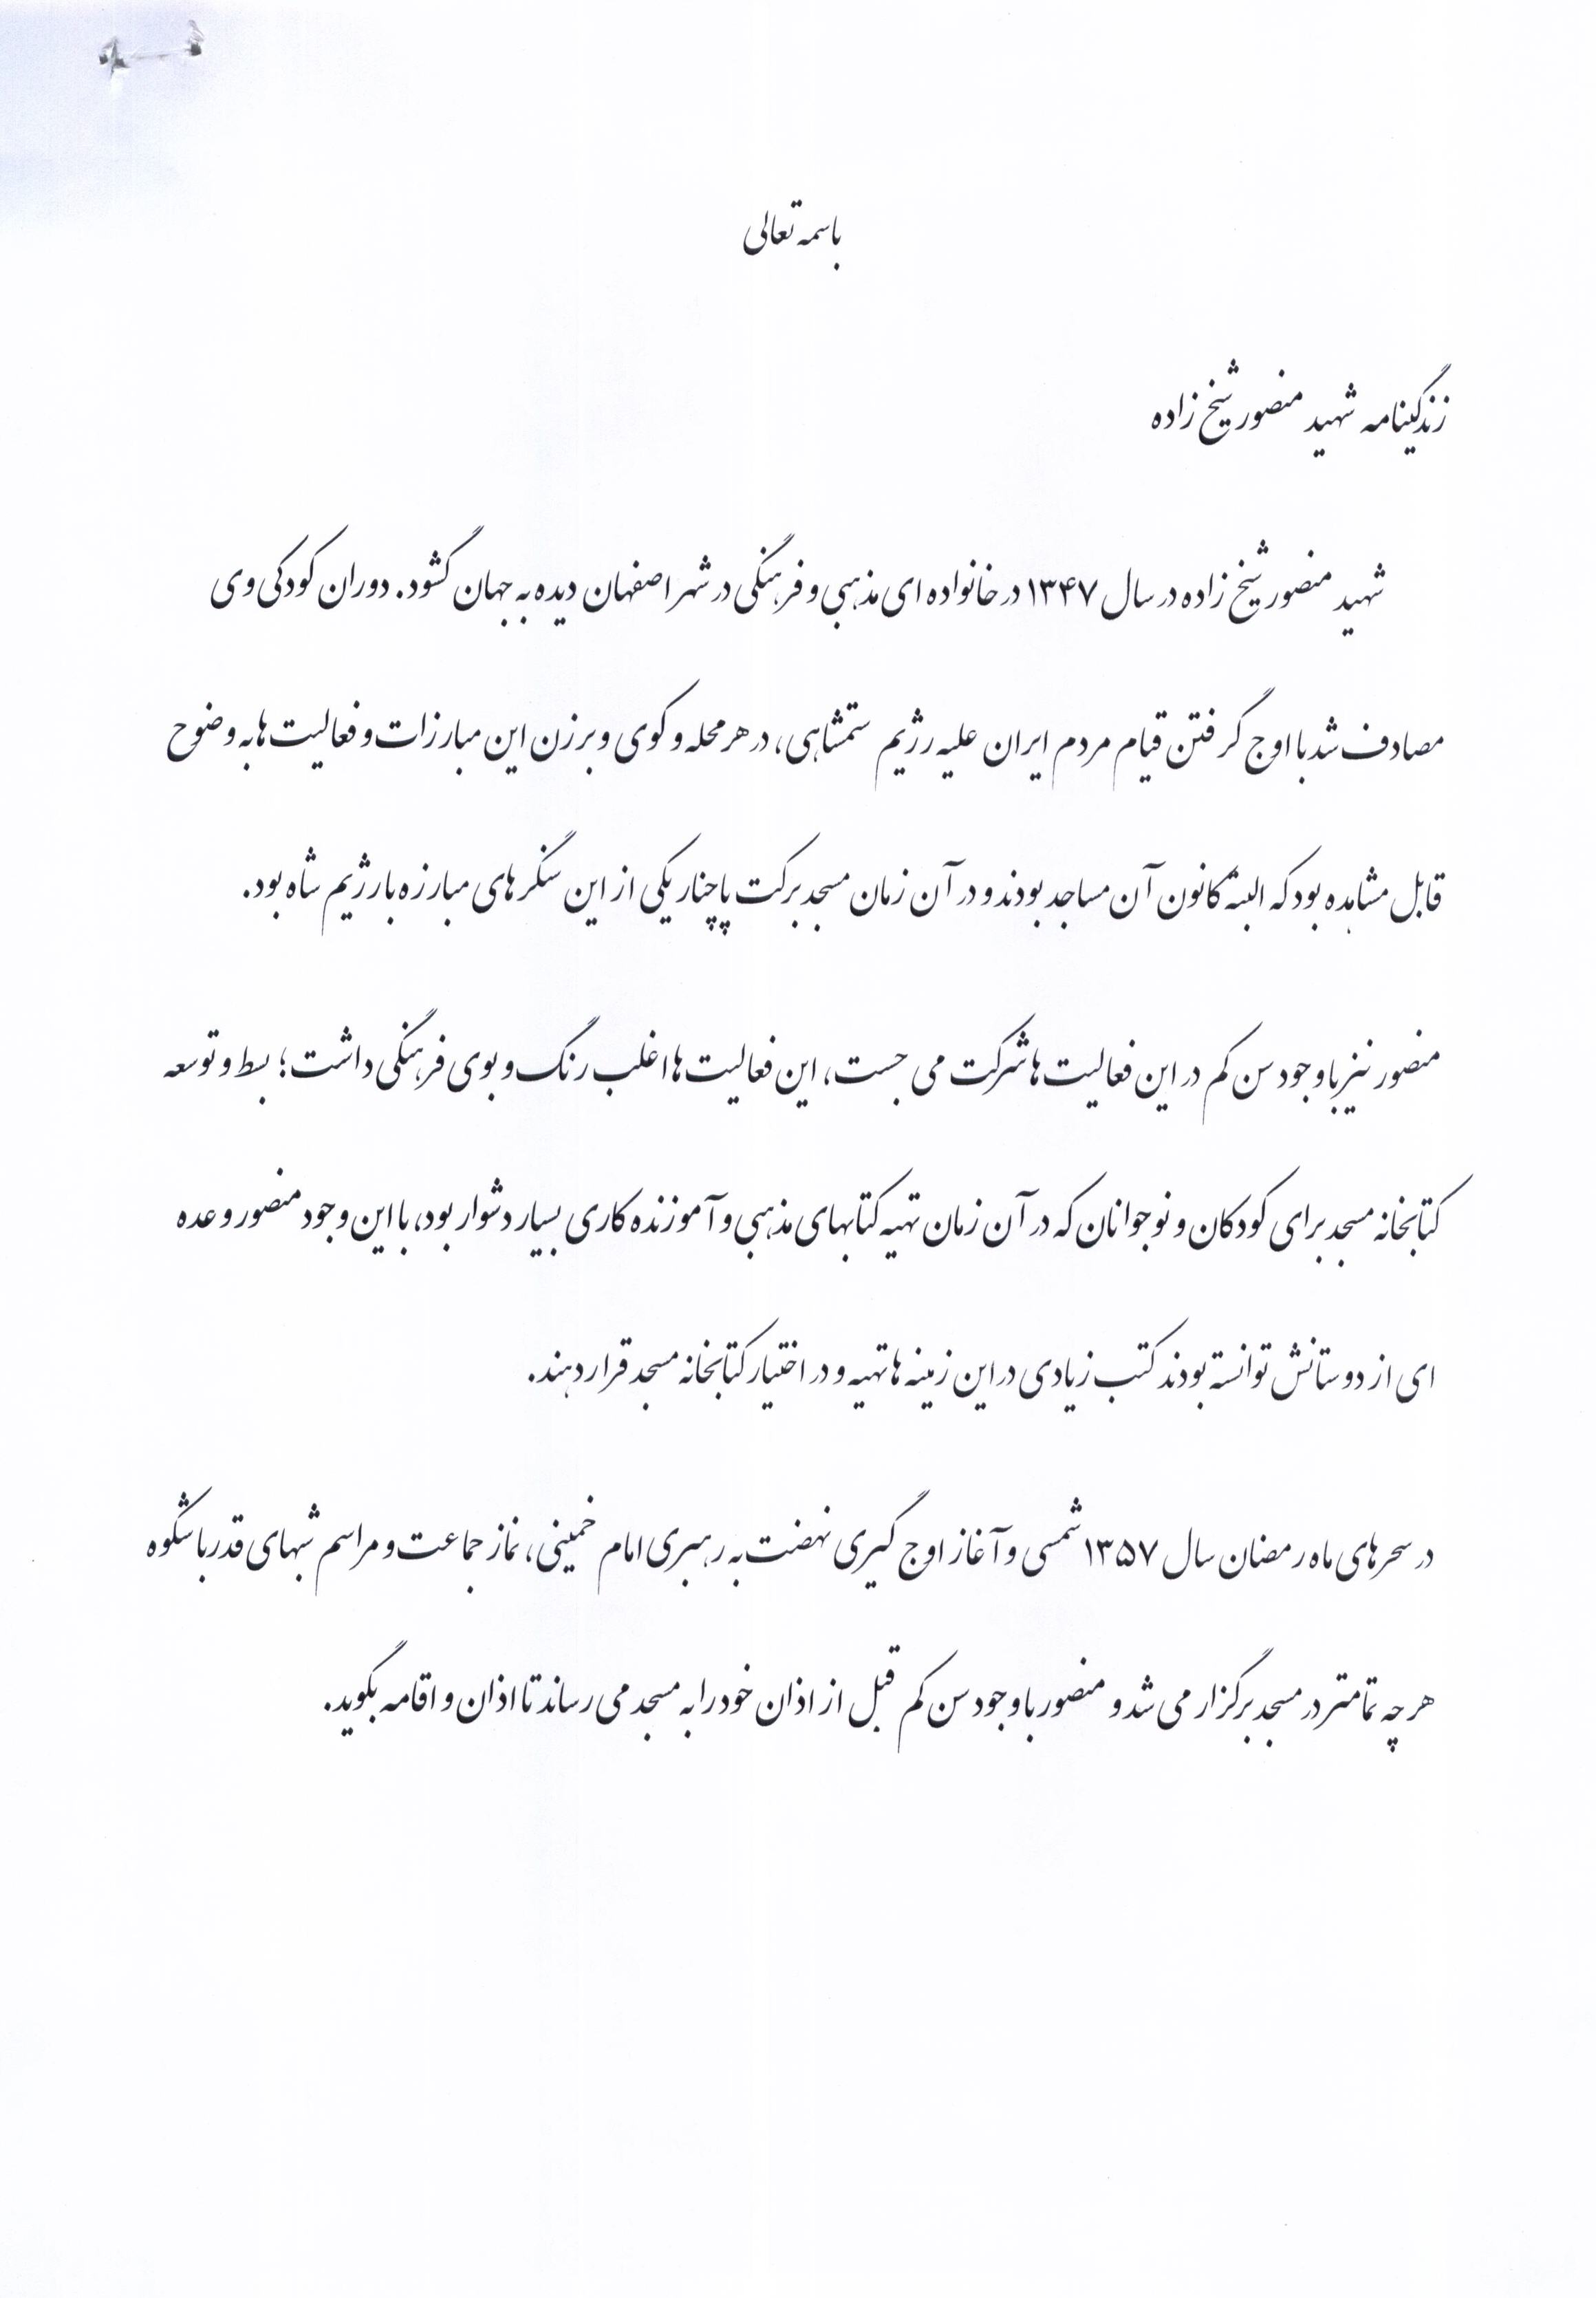 باسمه تعالی
زندگینامه شهید منصور شیخ زاده
شهید منصور شیخ زاده در سال ۱۳۴۷ در خانواده ای مذهبی و فرهنگی در شهر اصفهان دیده به جهان گشود. دوران کودکی وی
مصادف شد با اوج گرفتن قیام مردم ایران علیه رژیم ستمشاهی، در هر محله و کوی و برزن این مبارزات و فعالیت ها به وضوح
قابل مشاهده بود که البته کانون آن مساجد بودند و در آن زمان مسجد برکت پاچنار یکی از این سنگرهای مبارزه با رژیم شاه بود.
منصور نیز با وجود سن کم در این فعالیت ها شرکت می جست، این فعالیت ها اغلب رنگ و بوی فرهنگی داشت؛ بسط و توسعه
کتابخانه مسجد برای کودکان و نوجوانان که در آن زمان تهیه کتابهای مذهبی و آموزنده کاری بسیار دشوار بود، با این وجود منصور و عده
ای از دوستانش توانسته بودند کتب زیادی در این زمینه ها تهیه و در اختیار کتابخانه مسجد قرار دهند.
در سحرهای ماه رمضان سال ۱۳۵۷ شمسی و آغاز اوج گیری نهضت به رهبری امام خمینی، نماز جماعت و مراسم شبهای قدر با شکوه
هر چه تمامتر در مسجد برگزار می شد و منصور با وجود سن کم قبل از اذان خود را به مسجد می رساند تا اذان و اقامه بگوید.